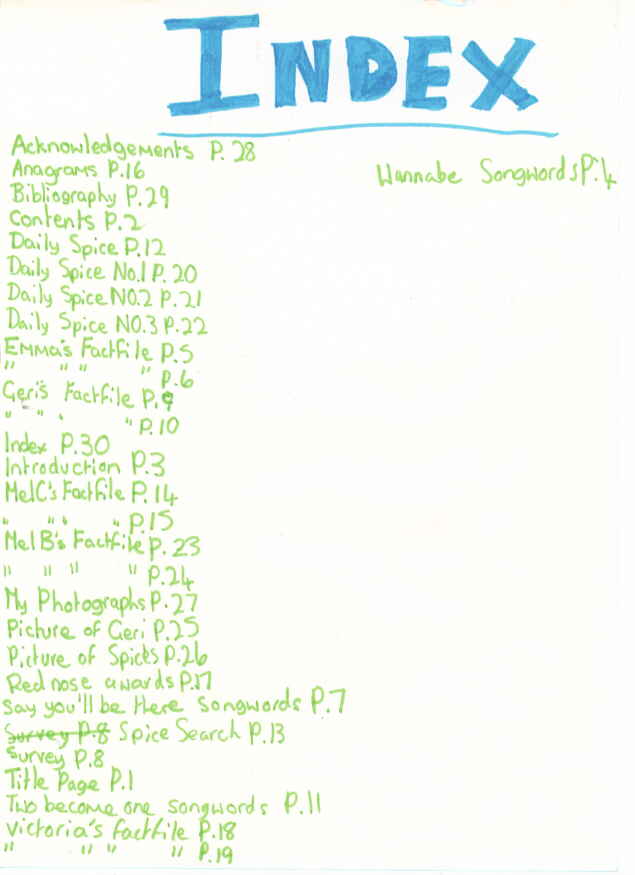 INDEX
Acknowledgements P. 28
Anagrams P.16
Wannabe Songwords P.4
Bibliography P.29
Contents P.2
Daily Spice P.12
Daily Spice No.1 P. 20
Daily Spice NO.2 P.21
Daily Spice NO.3 P.22
Emma's Factfile P.5
" " " " P.6
Geri's Factfile P.9
" " ' " P.10
Index P.30
Introduction P.3
MelC's Factfile P.14
" " ' " P.15
Mel B's Factfile P. 23
" " " " P.24
My Photographs P.27
Picture of Geri P.25
Picture of Spices P.26
Red nose awards P.17
Say you'll be there songwords P.7
Survey P.8 Spice Search P.13
Survey P.8
Title Page P.1
Two become one songwords P.11
Victoria's factfile P.18
" " " " P.19